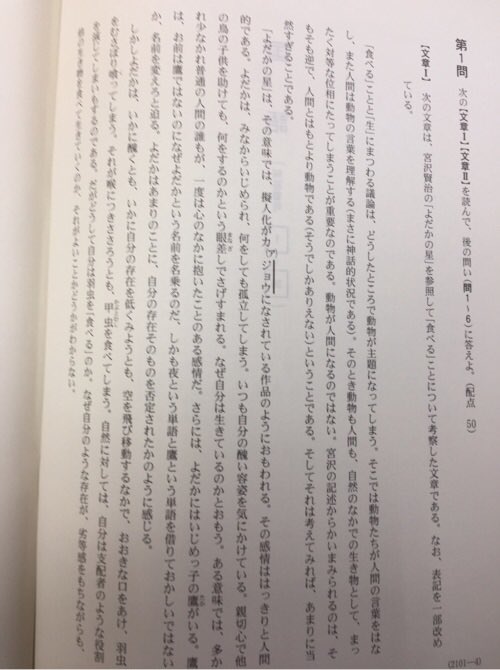 第1問　次の【文章Ⅰ】【文章Ⅱ】を読んで、後の問い(問1～6)に答えよ。(配点　50)
【文章Ⅰ】　次の文章は、宮沢賢治の「よだかの星」を参照して「食べる」ことについて考察した文章である。なお、表記を一部改め
ている。
「食べる」ことと「生」にまつわる議論は、どうしたところで動物が主題になってしまう。そこでは動物たちが人間の言葉をはな
し、また人間は動物の言葉を理解する(まさに神話的状況である)。そのとき動物も人間も、自然のなかでの生き物として、まっ
たく対等な位相にたってしまうことが重要なのである。動物が人間になるのではない。宮沢の記述からかいまみられるのは、そ
もそも逆で、人間とはもとより動物である(そうでしかありえない)ということである。そしてそれは考えてみれば、あまりに当
然すぎることである。
「よだかの星」は、その意味では、擬人化がカ(ア)ジョウになされている作品のようにおもわれる。その感情ははっきりと人間
的である。よだかは、みなからいじめられ、何をしても孤立してしまう。いつも自分の醜い容姿を気にかけている。親切心で他
の鳥の子供を助けても、何をするのかという眼差しでさげすまれる。なぜ自分は生きているのかとおもう。ある意味では、多か
れ少なかれ普通の人間の誰もが、一度は心のなかに抱いたことのある感情だ。さらには、よだかにはいじめっ子の鷹がいる。鷹
は、お前は鷹ではないのになぜよだかという名前を名乗るのだ、しかも夜という単語と鷹という単語を借りておかしいではない
か、名前を変えろと迫る。よだかはあまりのことに、自分の存在そのものを否定されたかのように感じる。
しかしよだかは、いかに醜くとも、いかに自分の存在を低くみようとも、空を飛び移動するなかで、おおきな口をあけ、羽虫
をむさぼり喰ってしまう。それが喉につきささろうとも、甲虫を食べてしまう。自然に対しては、自分は支配者のような役割
を演じてしまいもするのである。だがどうして自分は羽虫を「食べる」のか。なぜ自分のような存在が、劣等感をもちながらも、
他の生き物を食べて生きていくのか、それがよいことかどうかがわからない。
(2101―4)